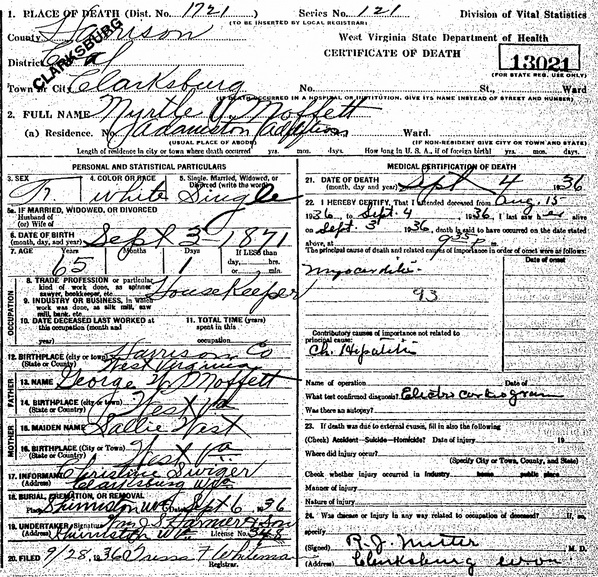 1. PLACE OF DEATH (Dist. No. 1721 ) Series No. 121 Division of Vital Statistics
(TO BE INSERTED BY LOCAL REGISTRAR)
County Harrison West Virginia State Department of Health
CERTIFICATE OF DEATH
District CLARKSBURG
13021
(FOR STATE REG. USE ONLY)
Town or City Clarksburg No. St., Ward
(IF DEATH OCCURRED IN A HOSPITAL OR INSTITUTION, GIVE ITS NAME INSTEAD OF STREET AND NUMBER)
2. FULL NAME Myrtle Moffett
(a) Residence. No. Adamston Addition Ward.
(USUAL PLACE OF ABODE) (IF NON-RESIDENT GIVE CITY OR TOWN AND STATE)
Length of residence in city or town where death occurred yrs. mos. days. How long in U. S. A., if of foreign birth? yrs. mos. days.
PERSONAL AND STATISTICAL PARTICULARS
3. SEX 4. COLOR OR RACE 5. Single, Married, Widowed, or Divorced (write the word)
F white Single
5a. IF MARRIED, WIDOWED, OR DIVORCED
Husband of
(or) Wife of
6. DATE OF BIRTH (month, day, and year) Sept 3 1871
7. AGE Years Months Days IF LESS than day, hrs. or min.
65 1
OCCUPATION
8. TRADE PROFESSION or particular kind of work done, as spinner, sawyer, bookkeeper, etc. Housekeeper
9. INDUSTRY OR BUSINESS, in which work was done, as silk mill, saw mill, bank, etc.
10. DATE DECEASED LAST WORKED at this occupation (month and year)
11. TOTAL TIME (years) spent in this occupation
12. BIRTHPLACE (city or town) Harrison Co
(State or Country) West Virginia
FATHER
13. NAME George W. Moffett
14. BIRTHPLACE (city or town)
(State or Country) West Va
MOTHER
15. MAIDEN NAME Sallie West
16. BIRTHPLACE (City or Town)
(State or Country) West Va
17. INFORMANT Christine Swiger
Clarksburg W Va
18. BURIAL, CREMATION, OR REMOVAL
Place Shinnston W Va Sept 6 1936
19. UNDERTAKER (Signature) J. S. Harmer & Son
(Address) Shinnston W Va License No. 348
20. FILED 9/28 1936
Registrar.
MEDICAL CERTIFICATION OF DEATH
21. DATE OF DEATH (month, day, and year) Sept 4 1936
22. I HEREBY CERTIFY, That I attended deceased from Aug. 15
1936, to Sept. 4, 1936, I last saw her alive
on Sept. 3 1936, death is said to have occurred on the date stated
above, at 9:35 P m.
The principal cause of death and related causes of importance in order of onset were as follows:
Date of onset
Myocarditis
93
Contributory causes of importance not related to principal cause:
Ch. Hepatitis
Name of operation Date of
What test confirmed diagnosis? Electro cardiogram
Was there an autopsy?
23. If death was due to external cause, fill in also the following
(Check) Accident—Suicide—Homicide? Date of injury 19
Where did injury occur?
(Specify City or Town, County, and State)
Check whether injury occurred in industry home public place
Manner of injury
Nature of injury
24. Was disease or injury in any way related to occupation of deceased? If so,
specify
(Signed) M. D.
(Address) Clarksburg